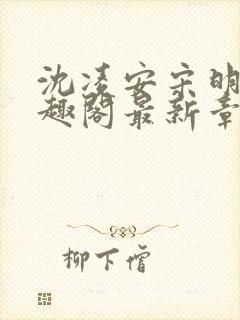 沈凌安宋明
趣阁最新章
柳下僧